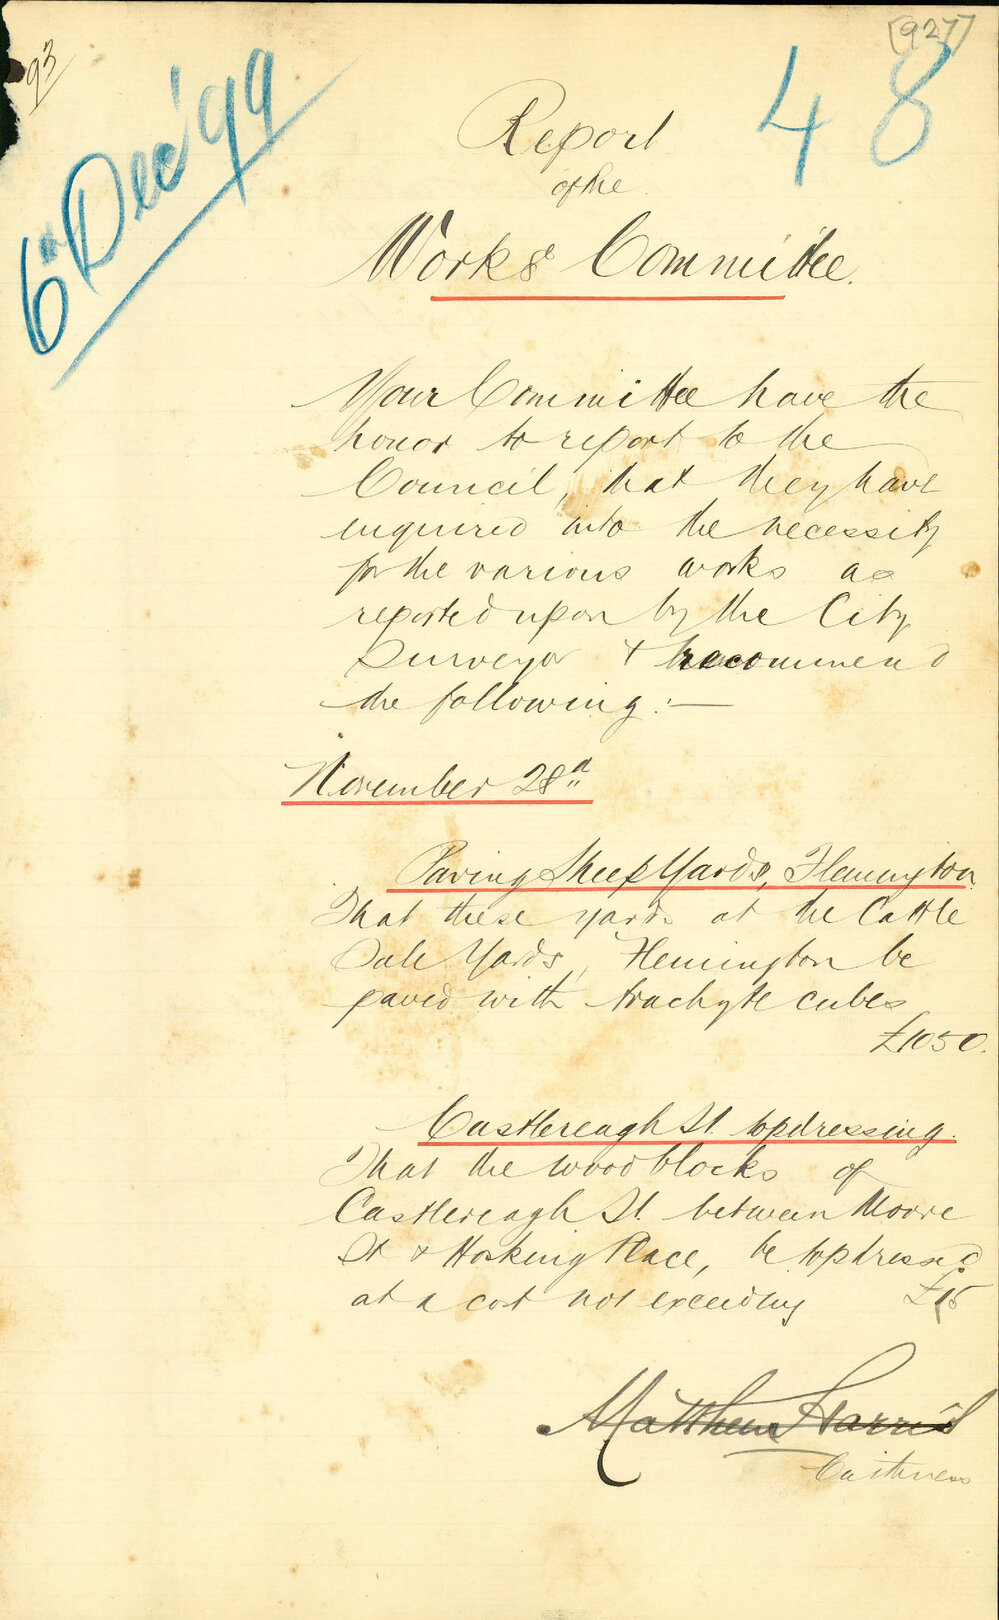 [927]
93
6th Dec '99
48
Report
of the
Works Committee.
Your Committee have the
honor to report to the
Council, that they have
enquired into the necessity
for the various works as
reported upon by the City
Surveyor & recommend
the following:—
November 28th
Paving Sheep Yards, Flemington.
That these yards at the Cattle
Sale Yards, Flemington be
paved with trachyte cubes
£1050.
Castlereagh St. topdressing.
That the woodblocks of
Castlereagh St between Moore
St & Hosking Place, be topdressed
at a cost not exceeding £15
Matthew Harris